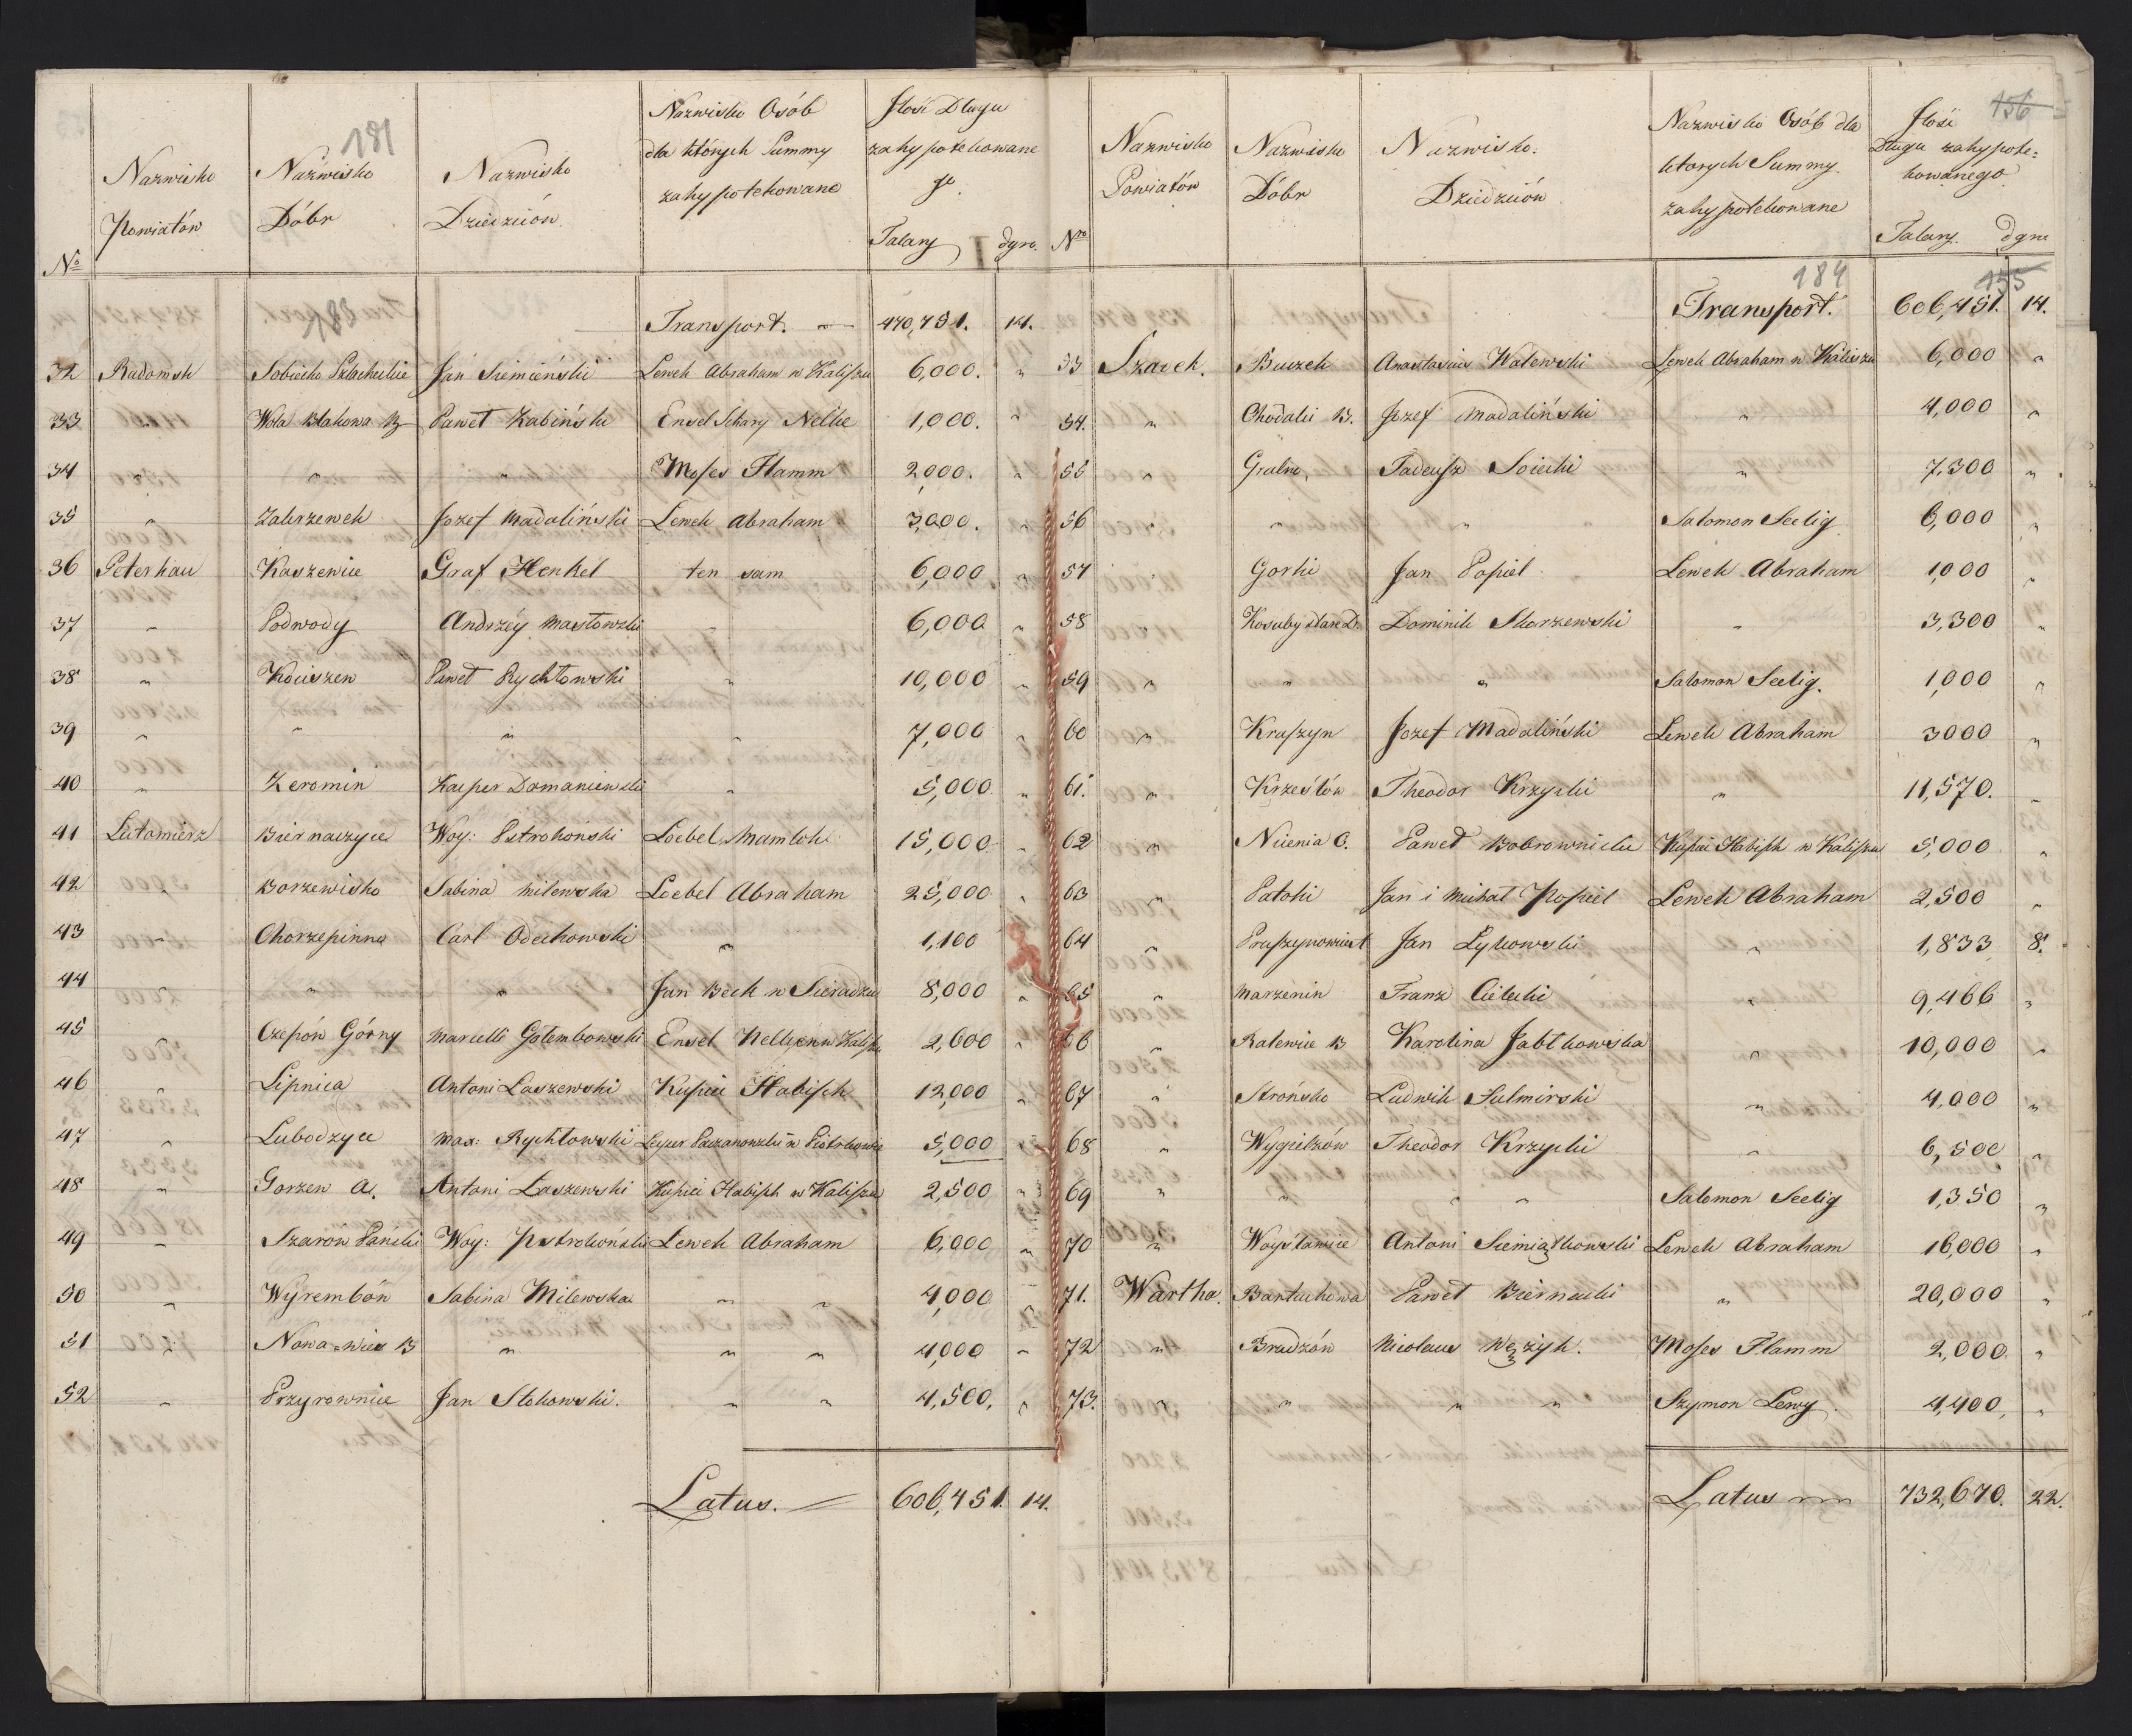 181
Nazwisko Powiatów
Nazwisko Dóbr
Nazwisko Dziedziców
Nazwisko Osób dla których Summy zahypotekowane
Jlość Długu zahypotekowane go
No
Talary dgrо.
183
Transport. 470,751. 14.
32 Radomsk Sobiecko Szlacheckie Jan Siemieński Lewek Abraham w Kaliszu 6,000. "
33 " Wola Blakowa B Paweł Kabiński Ensel Schary Nelke 1,000. "
34 " " Moses Flamm 2000. "
35 " Zakrzewek Jozef Madaliński Lewek Abraham 3,000. "
36 Peterkau Kaszewice Graf Henkel ten sam 6,000 "
37 " Podwody Andrzéy Masłowski " 6,000 "
38 " Kociszew Paweł Rychłowski " 10,000 "
39 " " " " 7,000 "
40 " Zeromin Kasper Domaniewski " 5,000 "
41 Lutomierz Biernaczyce Woy: Pstrokoński Loebel Mamlok 15,000 "
42 " Borzewisko Sabina Milewska Loebel Abraham 25,000 "
43 " Chorzepinna Carl Odechowski " 1,100
44 " " Jan Beck w Sieradzu 8,000 "
45 " Czepów Górny Marcelli Gołembowski Ensel Nelken w Kalisz 2,600 "
46 " Lipnica Antoni Łaszewski Kupiec Habisch 12,000 "
47 " Lubodzyce Max: Rychłowski w Piotrkowie 5,000 "
48 " Gorzew A. Antoni Łaszewski Kupiec Habisch w Kaliszu 2,500 "
49 " Szarów Pański Woy: Pstrokoński Lewek Abraham 6,000 "
50 " Wyrembów Sabina Milewska " " 4,000 "
51 " Nowa-wies B " " " 4,000 "
52 " Przyrownice Jan Stokowski. " " 4,500. "
Latus. 606,451. 14.
156
Nro
Nazwisko Powiatów
Nazwisko Dóbr
Nazwisko. Dziedziców
Nazwisko Osób dla ktorych Summy. zahypotekowane
Jlość Długu zahypote= kowanego
Talary. dgrо
184 155
Transport. 606,451. 14.
53 Szadek. Buczek Anastasius Walewski Lewek Abraham w Kaliszu 6,000 "
54. " Chodaki B. Jozef Madaliński " 4,000 "
55 " Grabno, Tadeusz Soiecki " 7,300 "
56 " " " Salomon Seelig 6,000 "
57 " Gorki Jan Popiel Lewek Abraham 1,000 "
58 " Dominik Skorzewski " 3,300 "
59 " " " Salomon Seelig. 1,000 "
60 " Kraszyn Jozef Madaliński Lewek Abraham 3000 "
61. " Krzesłów Theodor Krzycki " 11,570. "
62 " Nicenia C. Paweł Bobrownicki Kupiec Habisch w Kaliszu 5,000 "
63 " Patoki Jan i Michał Popiel Lewek Abraham 2,500 "
64 " Jan Łykowski " 1,833 8.
65 " Marzenin Franz Cielecki " 9,466 "
66 " Ralewice B Karolina Jabłkowska " 10,000 "
67 " Strońsko Ludwik Sulmirski " 4,000 "
68 " Wygiełzów Theodor Krzycki " 6,500 "
69 " " " " Salomon Seelig 1,350 "
70 " Woysławice Antoni Siemiątkowski Lewek Abraham 16,000 "
71. Wartha. Bartochowa Paweł Biernacki " 20,000 "
72 " Brudzów Nicolaus Wężyk. Moses Flamm 2,000 "
73. " " " " Szymon Lewy. 4,400, "
Latus 732,670. 22.